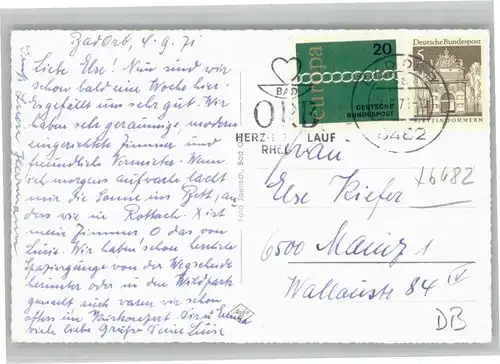 Bad Orb, 4.9.71
Liebe Else! Nun sind wir
schon bald eine Woche hier.
Es gefällt uns sehr gut. Wir
haben sehr geräumige, modern
eingerichtete Zimmer und
freundliche Vermieter. Wenn
ich morgens aufwache lacht
mir die Sonne ins Bett, an
das wie in Rottach. X ist
mein Zimmer, O das von
Luise. Wir haben schon herrliche
Spaziergänge von der Wegscheide
herunter oder in den Wildpark
gemacht auch waren wir schon
öfters im Kurkonzert. Dir u.
viele liebe Grüße Deine Luise
Foto Joersch, Bad
europa
20
DEUTSCHE
BUNDESPOST
Deutsche Bundespost
5
STETTIN POMMERN
BAD
ORB
HERZ- LAUF
RHEU
6482
Frau
Else Kiefer
6500 Mainz 1
Wallaustr 84 IV
x6482
DB